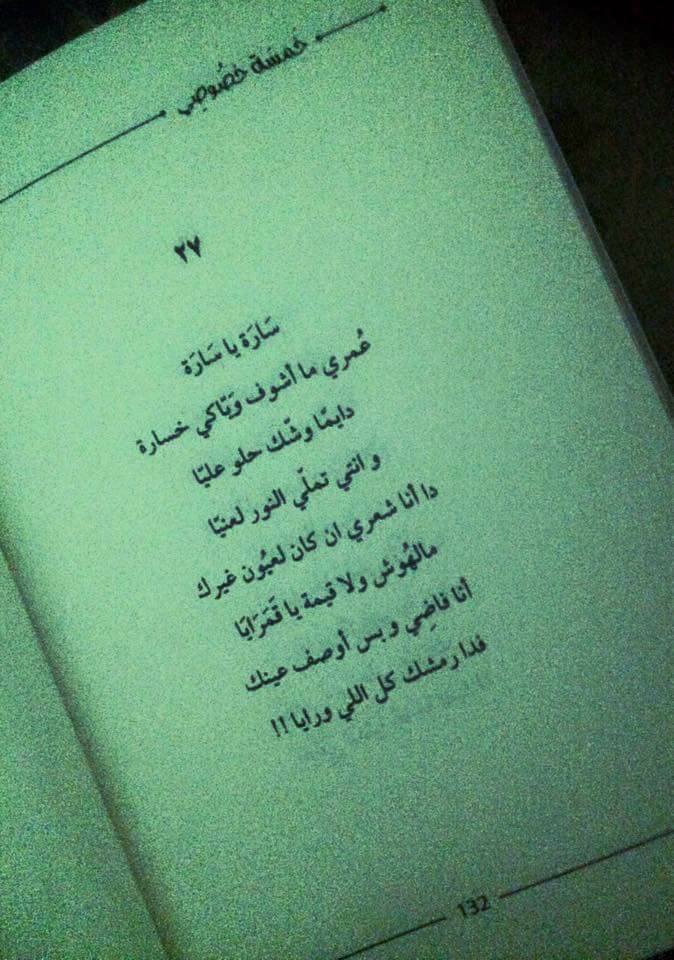 خمسة خصُوصِي
٢٧
سَارَة يا سَارَة
عُمري ما أشوف وَيّاكي خسارة
دايمًا وشّك حلو عليّا
و انتي تملّي النور لعنيّا
دا أنا شعري ان كان لعيُون غيرك
مالهُوش ولا قيمة يا قَمَرَايَا
أنا فاضِي و بس أوصف عينك
فدا رمشك كل اللي ورايا !!
132